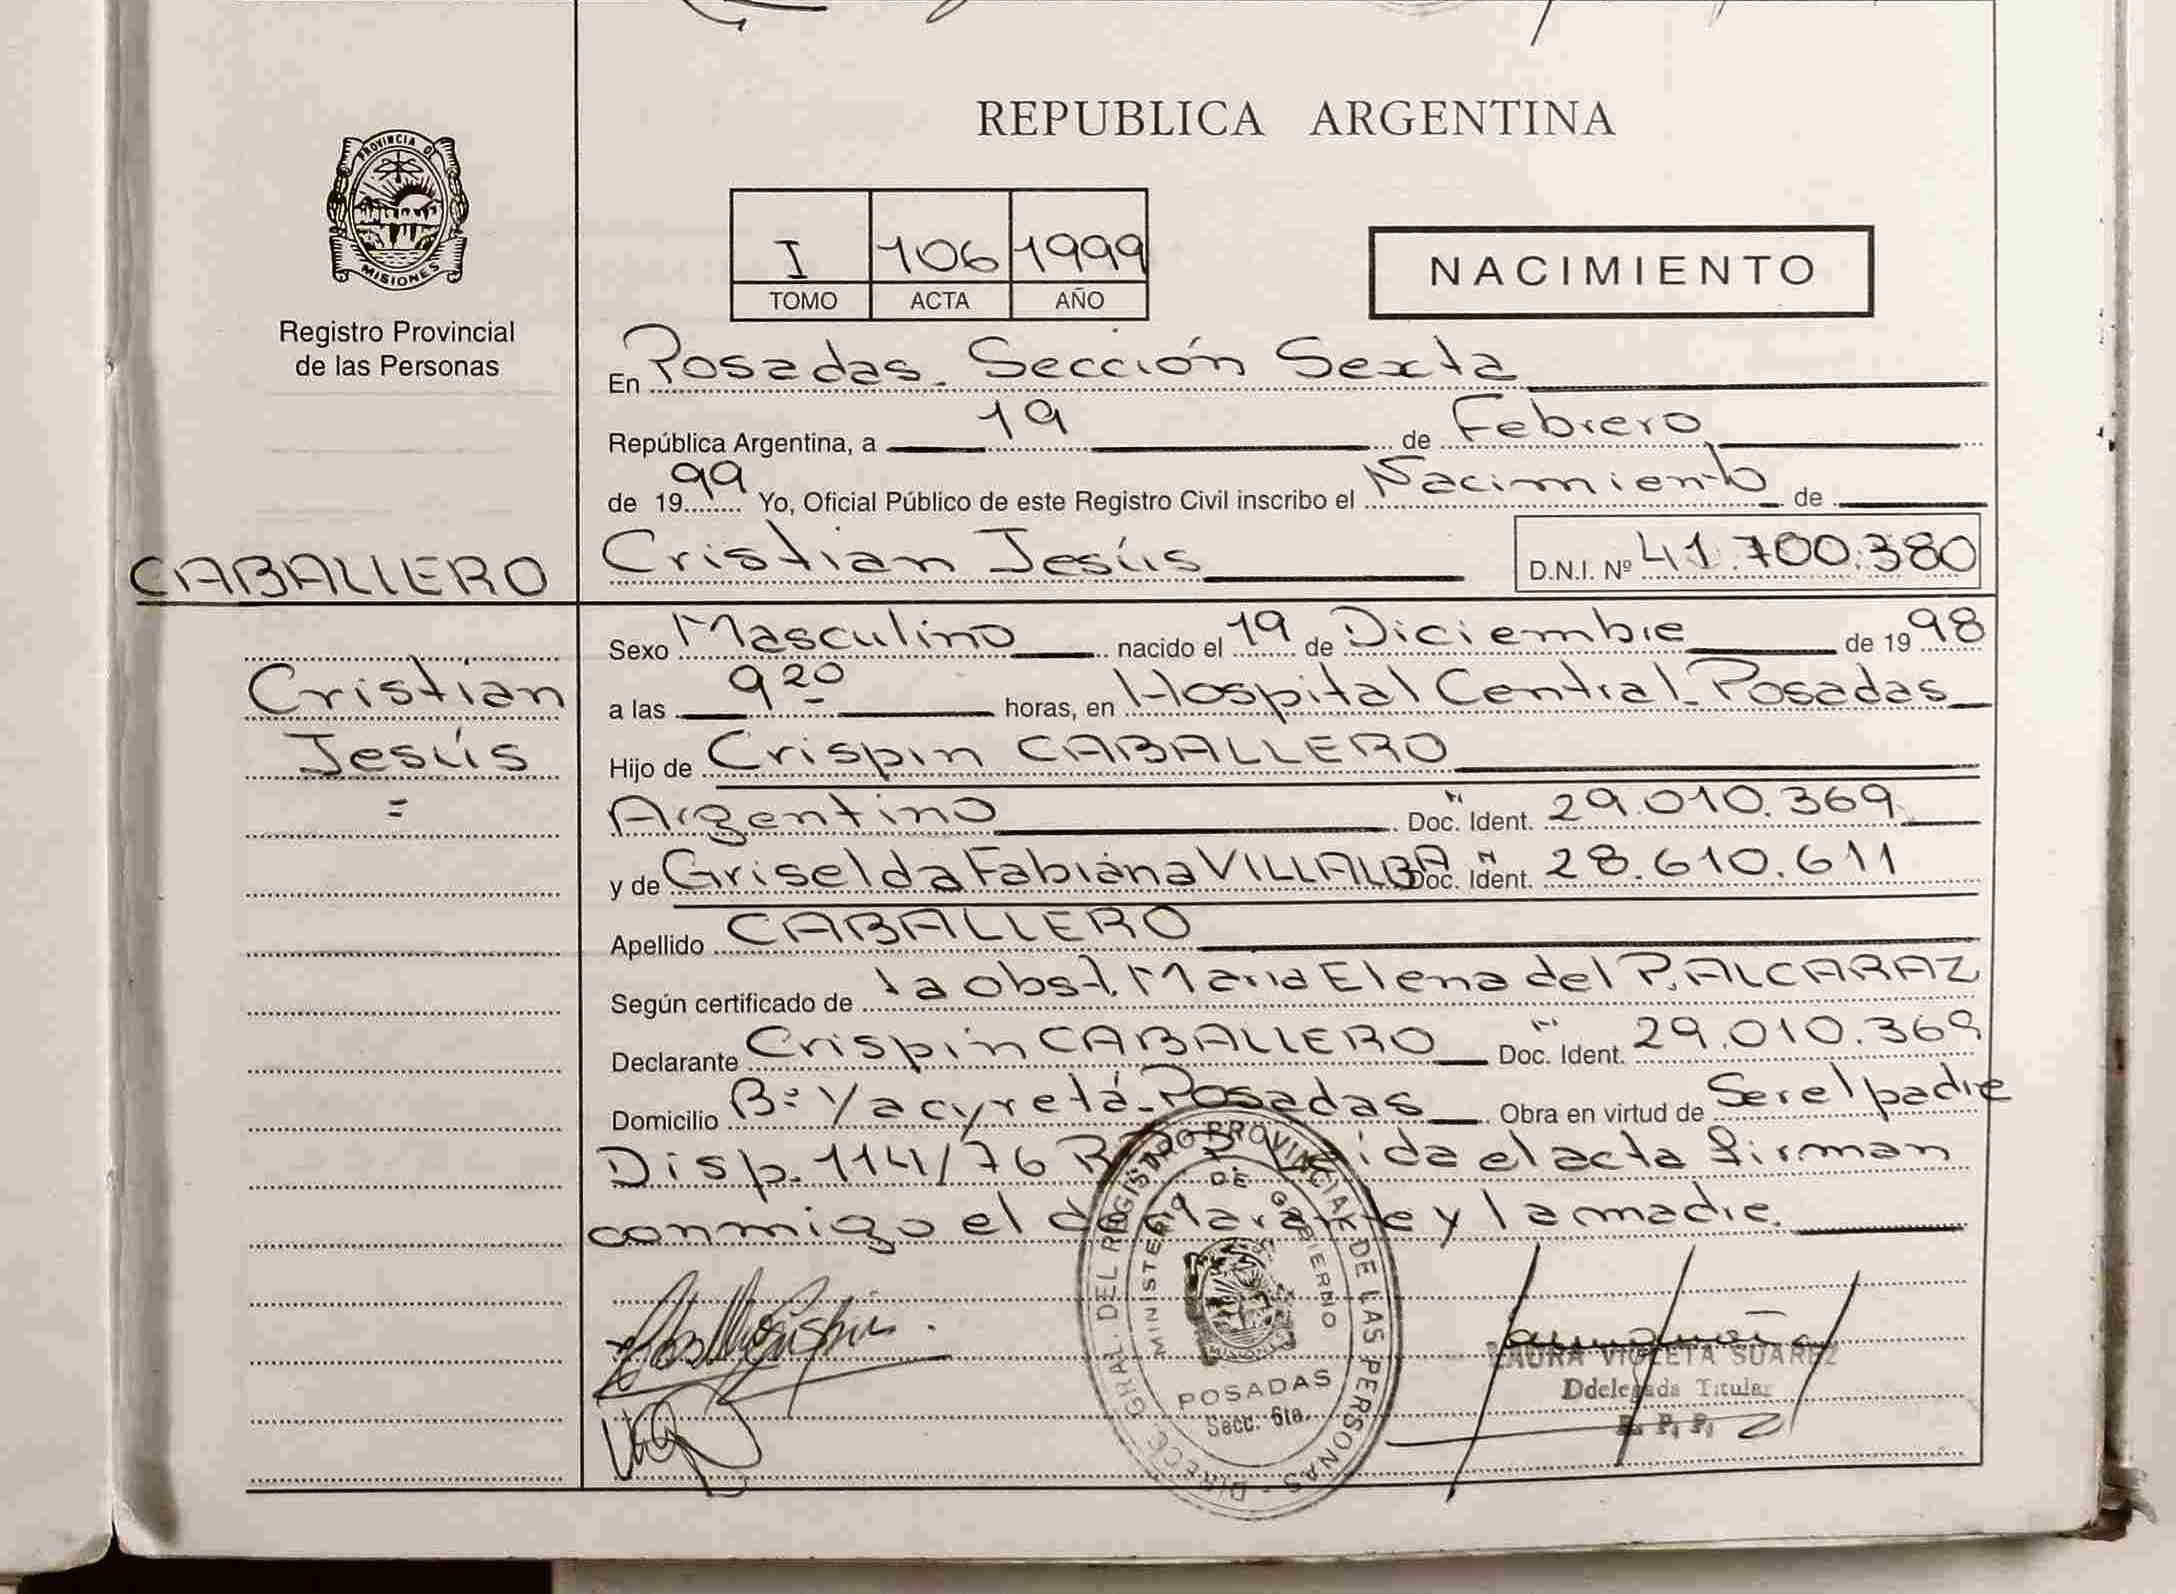 REPUBLICA ARGENTINA
PROVINCIA DE
MISIONES
Registro Provincial
de las Personas
I 106 1999
TOMO ACTA AÑO
NACIMIENTO
En Posadas. Sección Sexta
República Argentina, a 19 de Febrero
de 1999 Yo, Oficial Público de este Registro Civil inscribo el Nacimiento de
CABALLERO
Cristian Jesús D.N.I. Nº 41.700.380
Sexo Masculino nacido el 19 de Diciembre de 1998
Cristian
Jesús
=
a las 9 20 horas, en Hospital Central - Posadas
Hijo de Crispin CABALLERO
Argentino Doc. Ident. 29.010.369
y de Griselda Fabiána VILLALBA Doc. Ident. 28.610.611
Apellido CABALLERO
Según certificado de la obst. Maria Elena del P. ALCARAZ
Declarante Crispin CABALLERO Doc. Ident. 29.010.369
Domicilio Bº Yacyretá - Posadas Obra en virtud de Ser el padre
Disp. 114/76 Leida el acta firman
conmigo el declarante y la madre.
DIRECC. GRAL. DEL REGISTRO PROVINCIAL DE LAS PERSONAS
MINISTERIO DE GOBIERNO
POSADAS
Secc. 6ta.
LAURA VIOLETA SUAREZ
Ddelegada Titular
R. P. P.